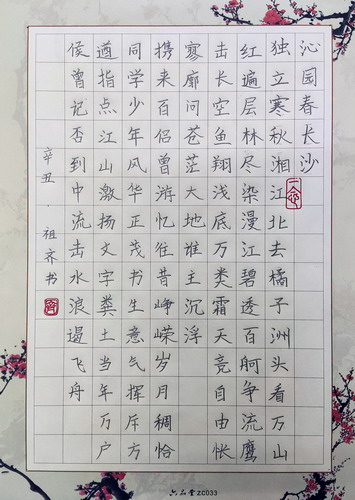 沁园春长沙
独立寒秋湘江北去橘子洲头看万山
红遍层林尽染漫江碧透百舸争流鹰
击长空鱼翔浅底万类霜天竞自由怅
寥廓问苍茫大地谁主沉浮
携来百侣曾游忆往昔峥嵘岁月稠恰
同学少年风华正茂书生意气挥斥方
遒指点江山激扬文字粪土当年万户
侯曾记否到中流击水浪遏飞舟
辛丑·祖齐书
六品堂 ZC033